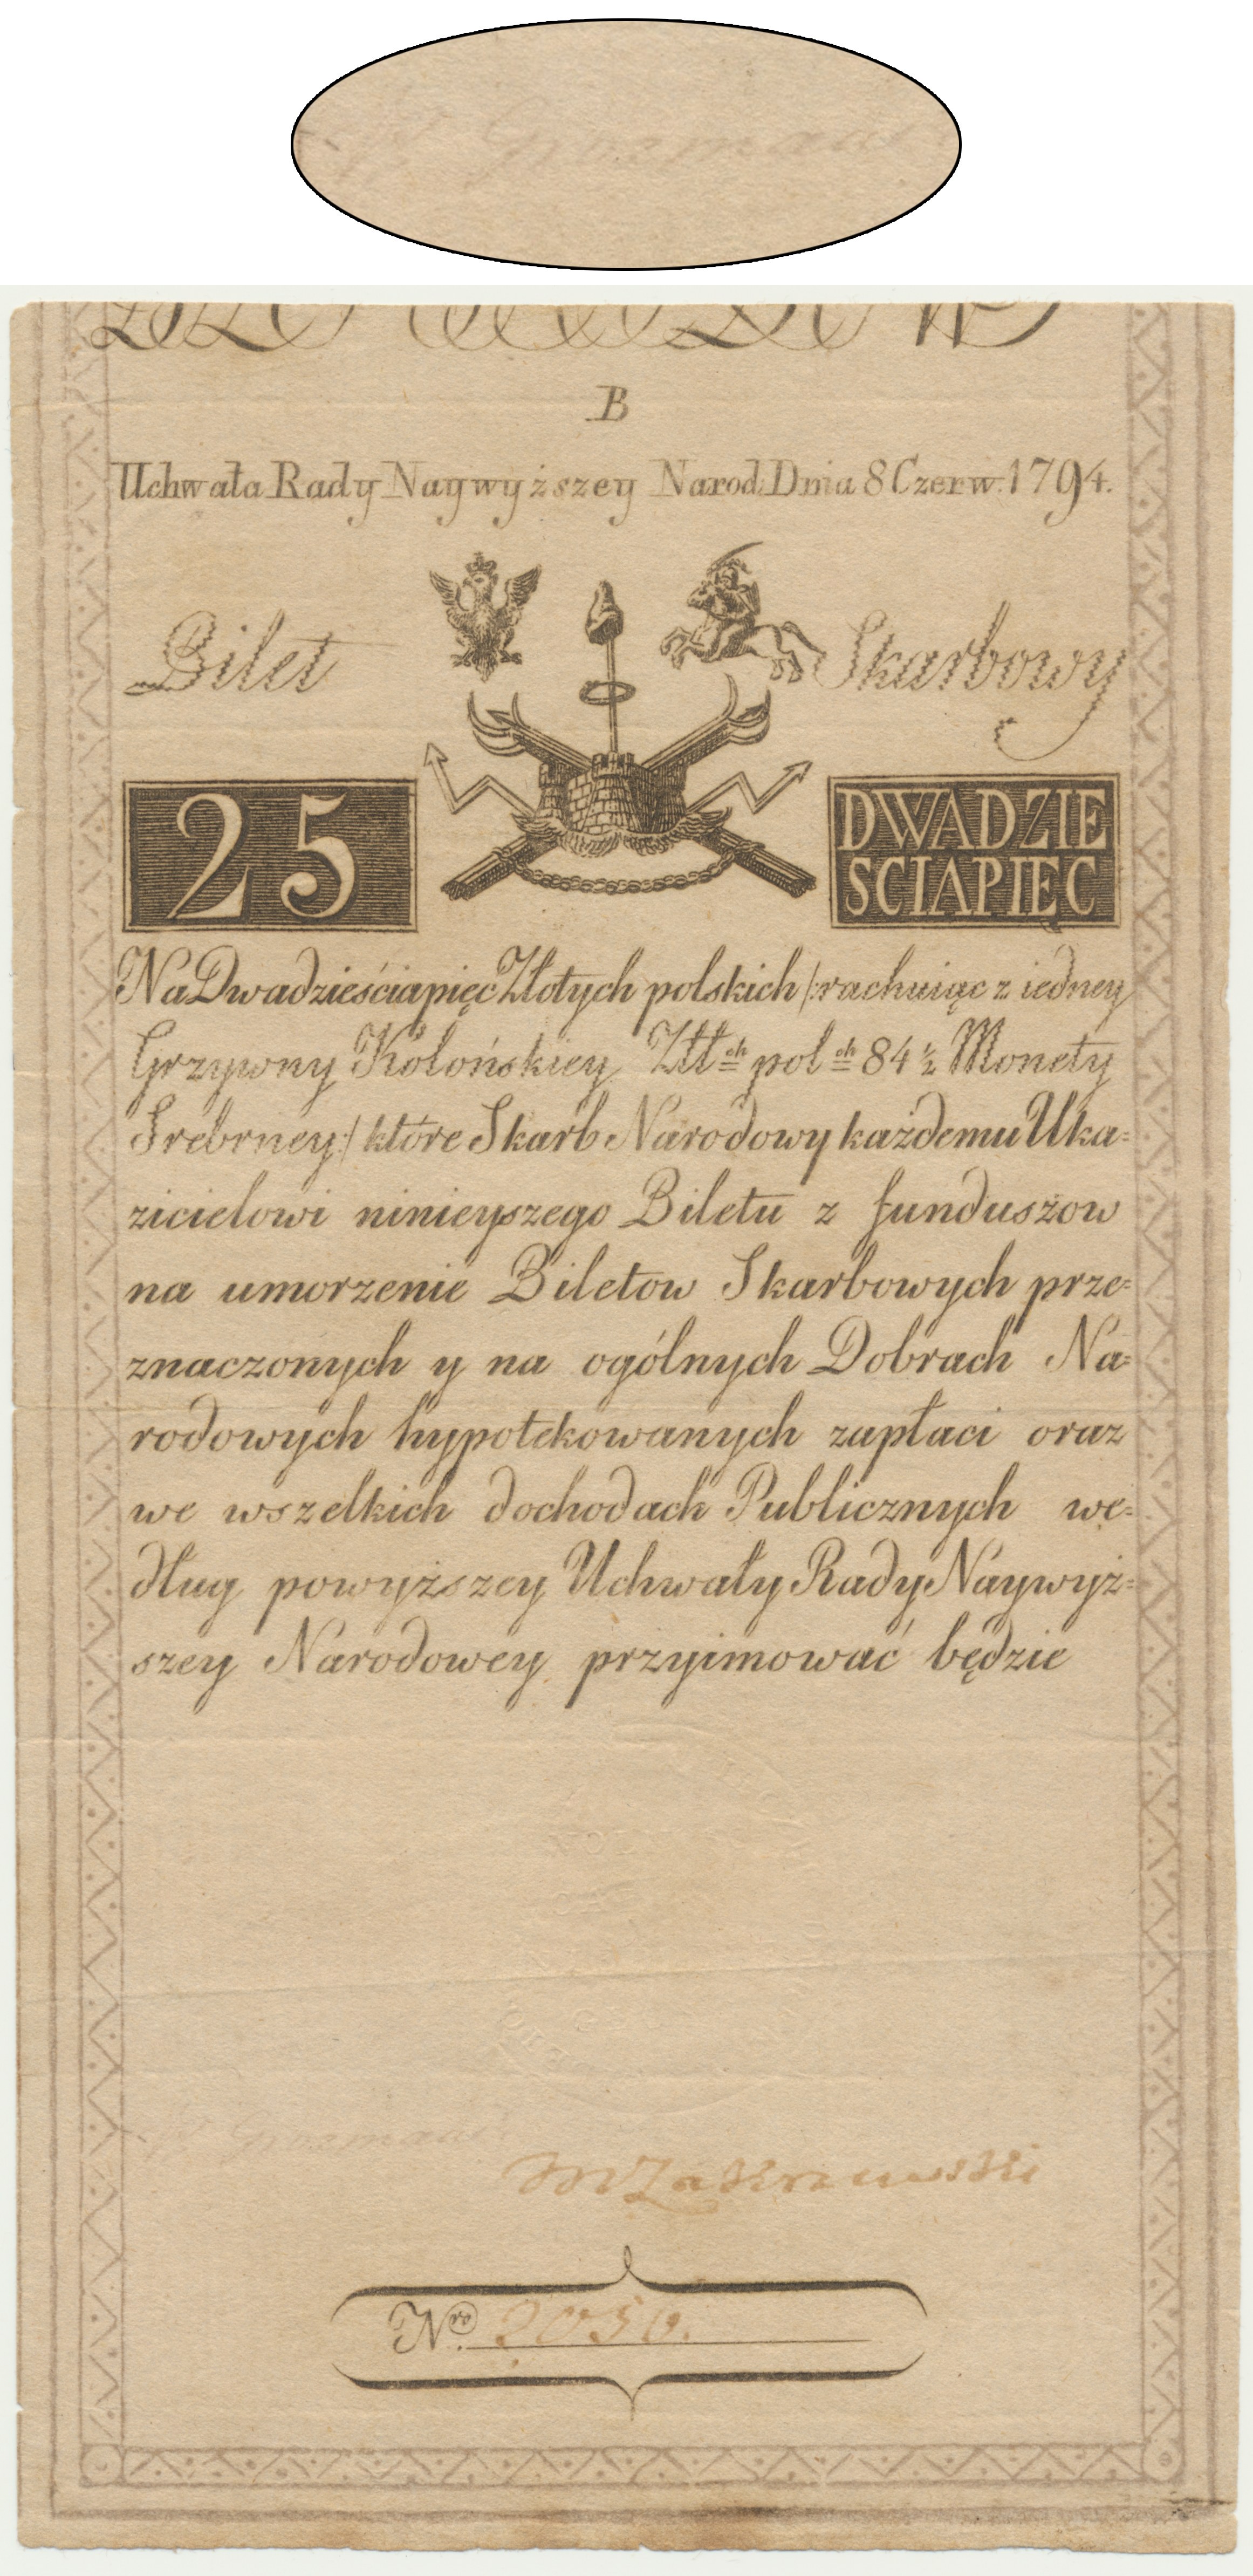 Grozmani
B
Uchwała Rady Naywyższey Narod. Dnia 8 Czerw. 1794.
Bilet Skarbowy
25 DWADZIE
SCIAPIĘC
Na Dwadzieściapięć Złotych polskich /:rachuiąc z iedney
Grzywny Kolońskiey Złł ch pol ch 84 ½ Monety
Srebrney:/ które Skarb Narodowy każdemu Uka=
zicielowi ninieyszego Biletu z funduszow
na umorzenie Biletow Skarbowych prze=
znaczonych y na ogólnych Dobrach Na=
rodowych hypotekowanych zapłaci oraz
we wszelkich dochodach Publicznych we=
dług powyższey Uchwały Rady Naywyż=
szey Narodowey przyimować będzie
MZakrzewski
Nro 2050.